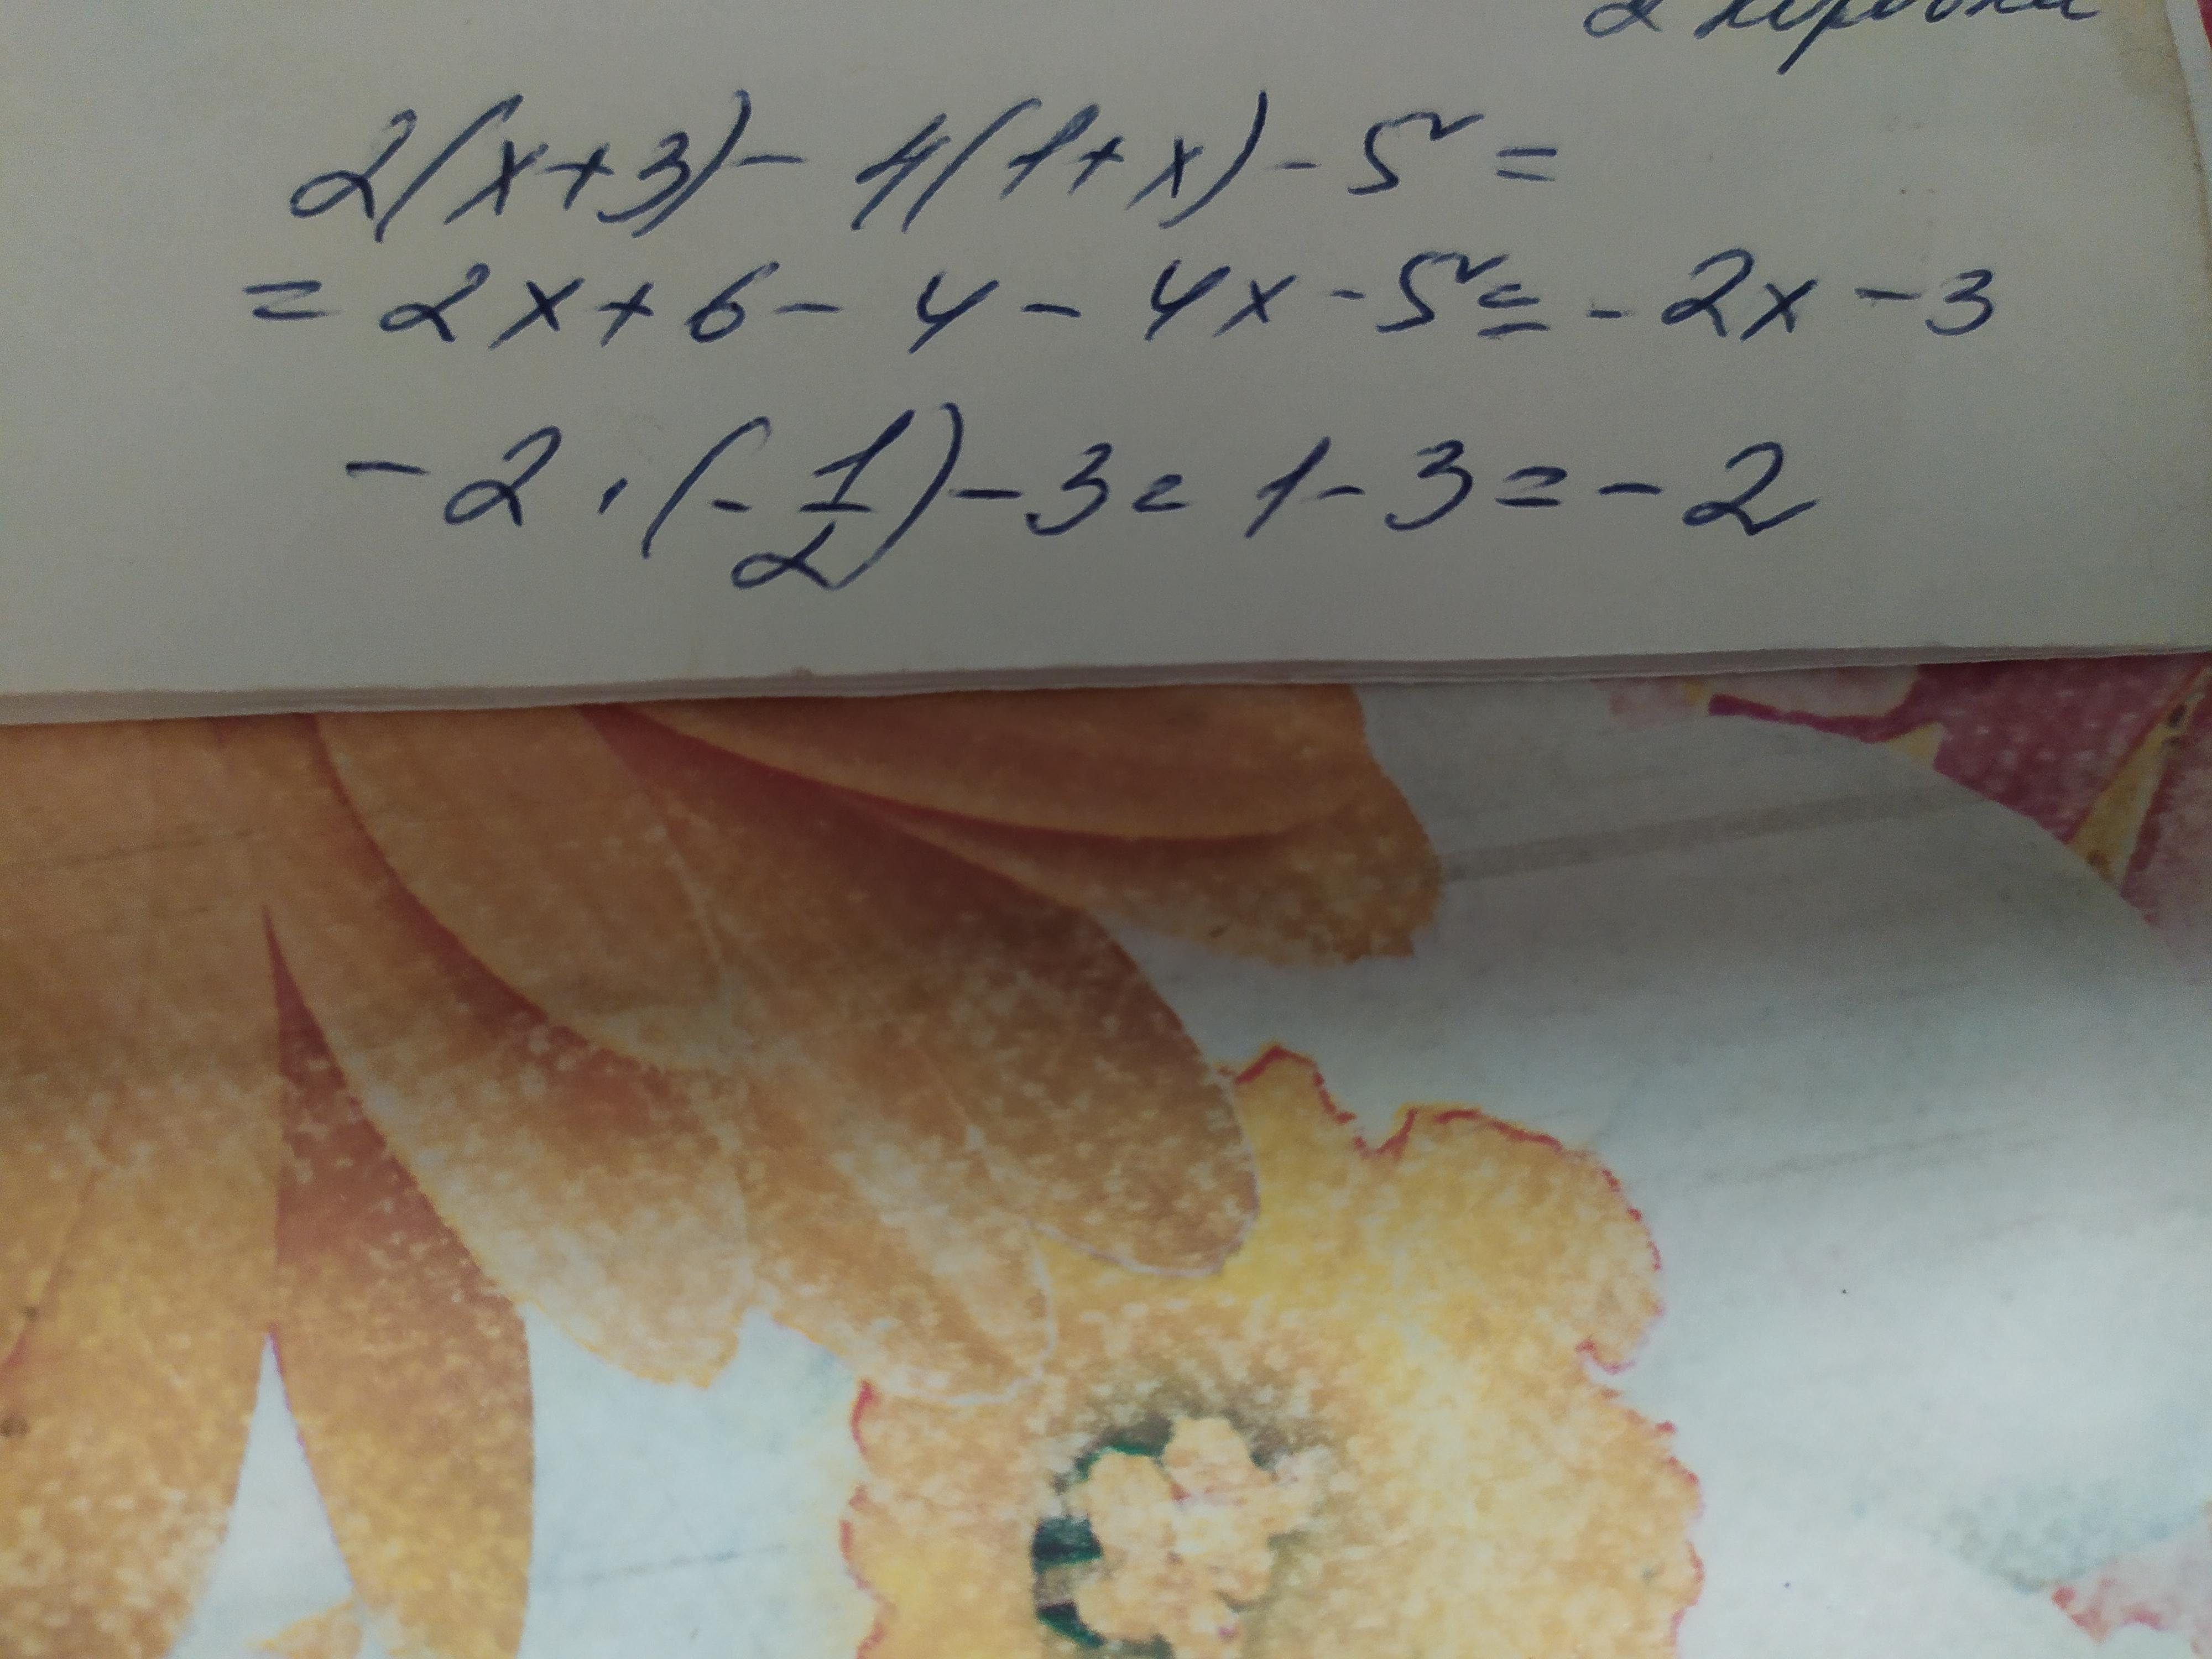 2(x+3) - 4(1+x) - 5 =
= 2x + 6 - 4 - 4x - 5 = - 2x - 3
- 2 · (- 1/2) - 3 = 1 - 3 = - 2